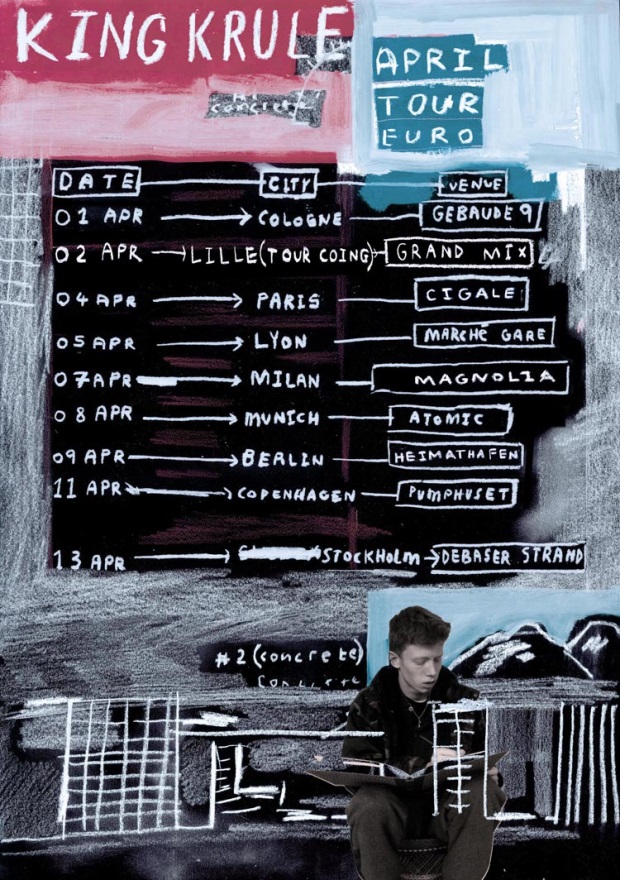 KING KRULE
APRIL
TOUR
EURO
#1
concrete
DATE CITY VENUE
01 APR COLOGNE GEBAUDE 9
02 APR LILLE (TOUR COING) GRAND MIX
04 APR PARIS CIGALE
05 APR LYON MARCHÉ GARE
07 APR MILAN MAGNOLIA
08 APR MUNICH ATOMIC
09 APR BERLIN HEIMATHAFEN
11 APR COPENHAGEN PUMPHUSET
13 APR STOCKHOLM DEBASER STRAND
#2 (concrete)
Concrete